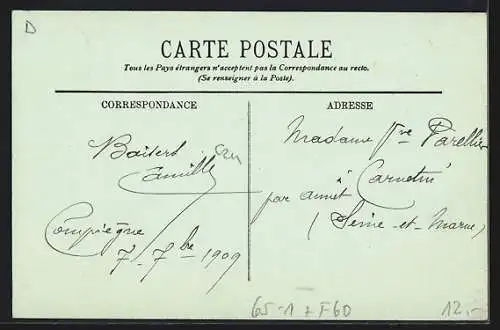 D
CARTE POSTALE
Tous les Pays étrangers n'acceptent pas la Correspondance au recto.
(Se renseigner à la Poste).
CORRESPONDANCE
ADRESSE
Baisers
Camille
Compiègne
7-7bre 1909
Madame Vve Parellier
à Carnetin
par Annet
(Seine-et-Marne)
65-1 F60
12.-